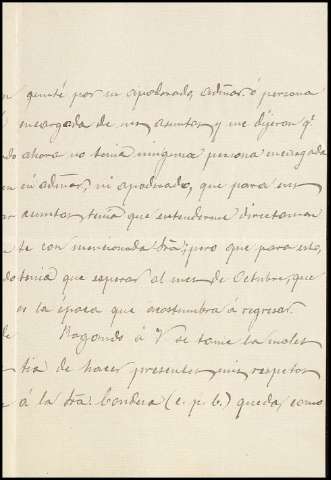 n quinté por su apoderado, admor. ó persona
encargada de sus asuntos y me dijeron qe
do ahora no tenía ninguna persona encargada
en admor, ni apoderado, que para sus
ar asuntos tenía que entenderme directamen
te con mencionada Sra; pero que para esto,
do tenía que esperar al mes de Octubre, que
es la época que acostumbra á regresar.
de Rogando á V se tome la moles
tia de hacer presentes mis respetos
á la Sra. Condesa (c. p. b.) queda, como